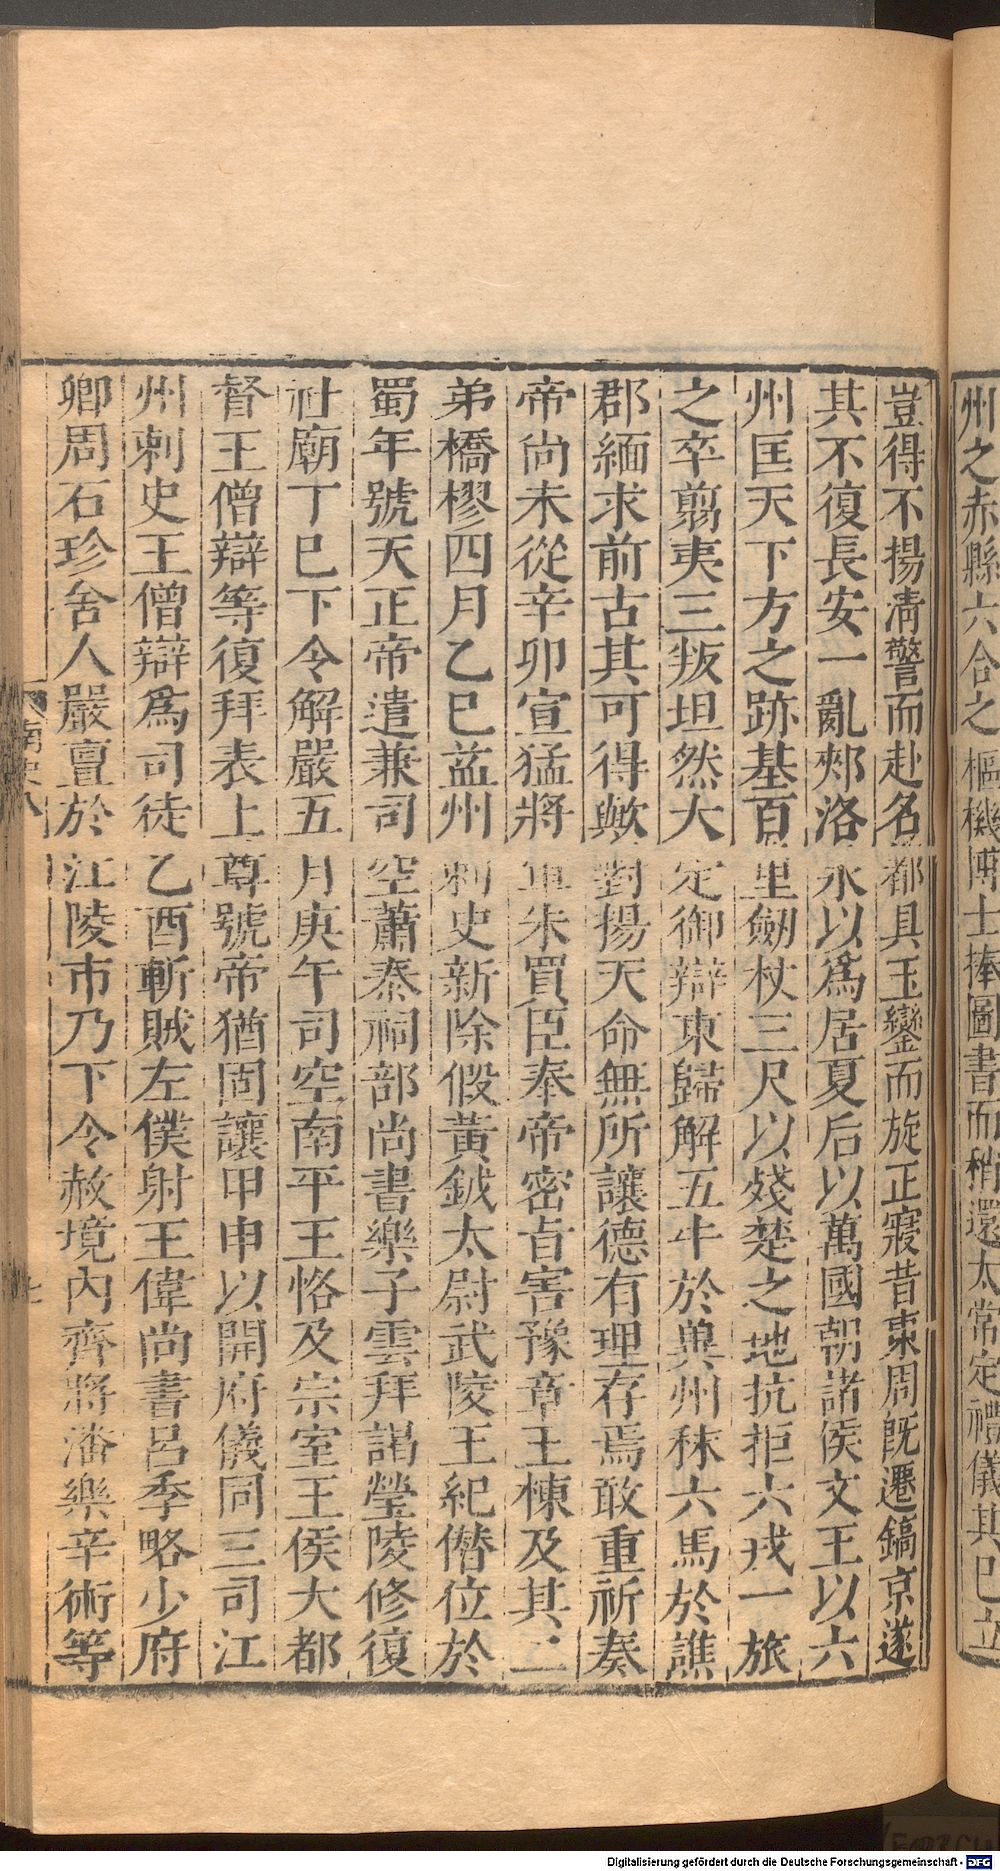 州之赤縣六合之樞機博士捧圖書而稍還太常定禮儀其已立
豈得不揚淸警而赴名都具玉鑾而旋正寢昔東周旣遷鎬京遂
其不復長安一亂郟洛永以爲居夏后以萬國朝諸侯文王以六
州匡天下方之跡基百里劒杖三尺以殘楚之地抗拒六戎一旅
之卒翦夷三叛坦然大定御辯東歸解五牛於兾州秣六馬於譙
郡緬求前古其可得歟對揚天命無所讓德有理存焉敢重祈奏
帝尚未從辛卯宣猛將軍朱買臣奉帝密旨害豫章王棟及其二
弟橋樛四月乙巳益州刺史新除假黃鉞太尉武陵王紀僭位於
蜀年號天正帝遣兼司空蕭泰祠部尚書樂子雲拜謁塋陵修復
社廟丁巳下令解嚴五月庚午司空南平王恪及宗室王侯大都
督王僧辯等復拜表上尊號帝猶固讓甲申以開府儀同三司江
州刺史王僧辯爲司徒乙酉斬賊左僕射王偉尚書呂季略少府
卿周石珍舍人嚴亶於江陵市乃下令赦境內齊將潘樂辛術等
南史八
七
Digitalisierung gefördert durch die Deutsche Forschungsgemeinschaft - DFG